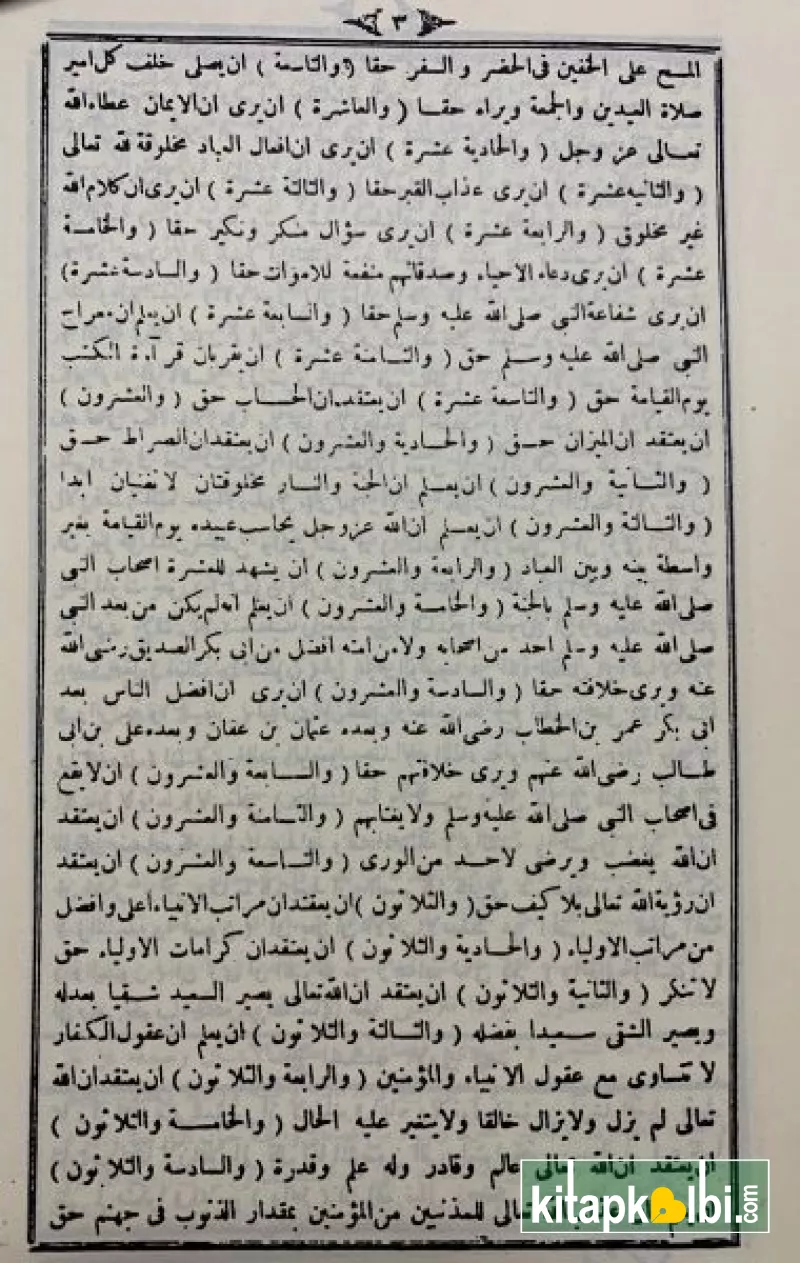 ٣
المسح على الخفين فى الحضر والسفر حقا (والتاسعة) ان يصلى خلف كل امير
صلاة العيدين والجمعة ويراه حقا (والعاشرة) ان يرى ان الايمان عطاء الله
تعالى عز وجل (والحادية عشرة) ان يرى ان افعال العباد مخلوقة لله تعالى
(والثانيه عشرة) ان يرى عذاب القبر حقا (والثالثة عشرة) ان يرى ان كلام الله
غير مخلوق (والرابعة عشرة) ان يرى سؤال منكر ونكير حقا (والخامسة
عشرة) ان يرى دعاء الاحياء وصدقاتهم منفعة للاموات حقا (والسادسة عشرة)
ان يرى شفاعة النبى صلى الله عليه وسلم حقا (والسابعة عشرة) ان يعلم ان معراج
النبى صلى الله عليه وسلم حق (والثامنة عشرة) ان يقربان قرآءة الكتب
يوم القيامة حق (والتاسعة عشرة) ان يعتقد ان الحساب حق (والعشرون)
ان يعتقد ان الميزان حق (والحادية والعشرون) ان يعتقد ان الصراط حق
(والثانية والعشرون) ان يعلم ان الجنة والنار مخلوقتان لا تفنيان ابدا
(والثالثة والعشرون) ان يعلم ان الله عز وجل يحاسب عبيده يوم القيامة بغير
واسطة بينه وبين العباد (والرابعة والعشرون) ان يشهد للعشرة اصحاب النبى
صلى الله عليه وسلم بالجنة (والخامسة والعشرون) ان يعلم انه لم يكن من بعد النبى
صلى الله عليه وسلم احد من اصحابه ولا من امته افضل من ابى بكر الصديق رضى الله
عنه ويرى خلافته حقا (والسادسة والعشرون) ان يرى ان افضل الناس بعد
ابى بكر عمر بن الخطاب رضى الله عنه وبعده عثمان بن عفان وبعده على بن ابى
طالب رضى الله عنهم ويرى خلافتهم حقا (والسابعة والعشرون) ان لا يقع
فى اصحاب النبى صلى الله عليه وسلم ولا يغتابهم (والثامنة والعشرون) ان يعتقد
ان الله يغضب ويرضى لا حد من الورى (والتاسعة والعشرون) ان يعتقد
ان رؤية الله تعالى بلا كيف حق (والثلاثون) ان يعتقد ان مراتب الانبياء اعلى وافضل
من مراتب الاولياء (والحادية والثلاثون) ان يعتقد ان كرامات الاولياء حق
لا تنكر (والثانية والثلاثون) ان يعتقد ان الله تعالى يصير السعيد شقيا بعدله
ويصير الشقى سعيدا بفضله (والثالثة والثلاثون) ان يعلم ان عقول الكفار
لا تتساوى مع عقول الانبياء والمؤمنين (والرابعة والثلاثون) ان يعتقد ان الله
تعالى لم يزل ولا يزال خالقا ولا يتغير عليه الحال (والخامسة والثلاثون)
ان يعتقد ان الله تعالى عالم وقادر وله علم وقدرة (والسادسة والثلاثون)
تعالى للمذنبين من المؤمنين بمقدار الذنوب فى جهنم حق
kitapkalbi.com